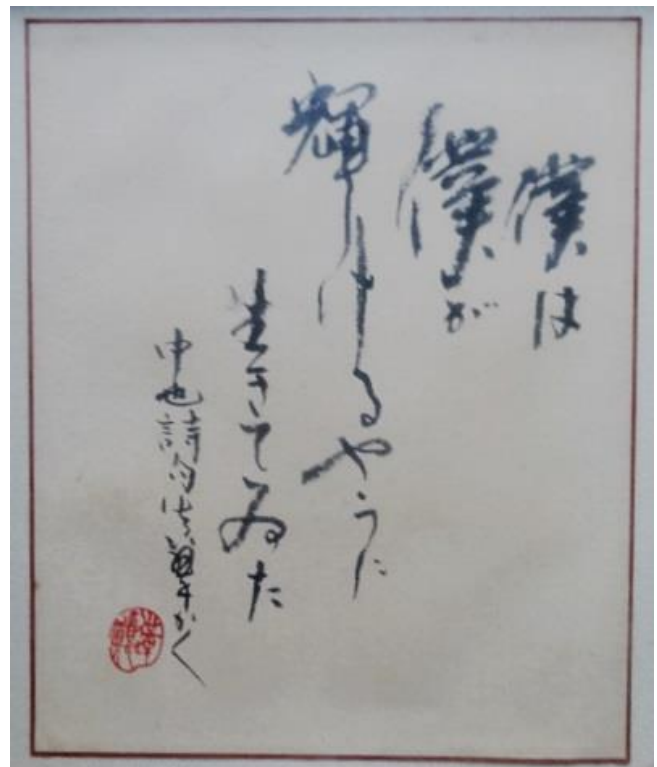 僕は
僕が
輝けるやうに
生きてゐた
中也詩句 かく